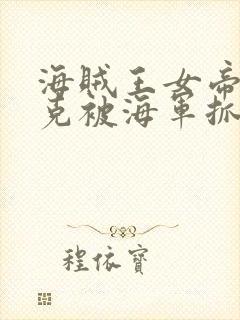 海賊王女帝
克被海軍抓
程依寶